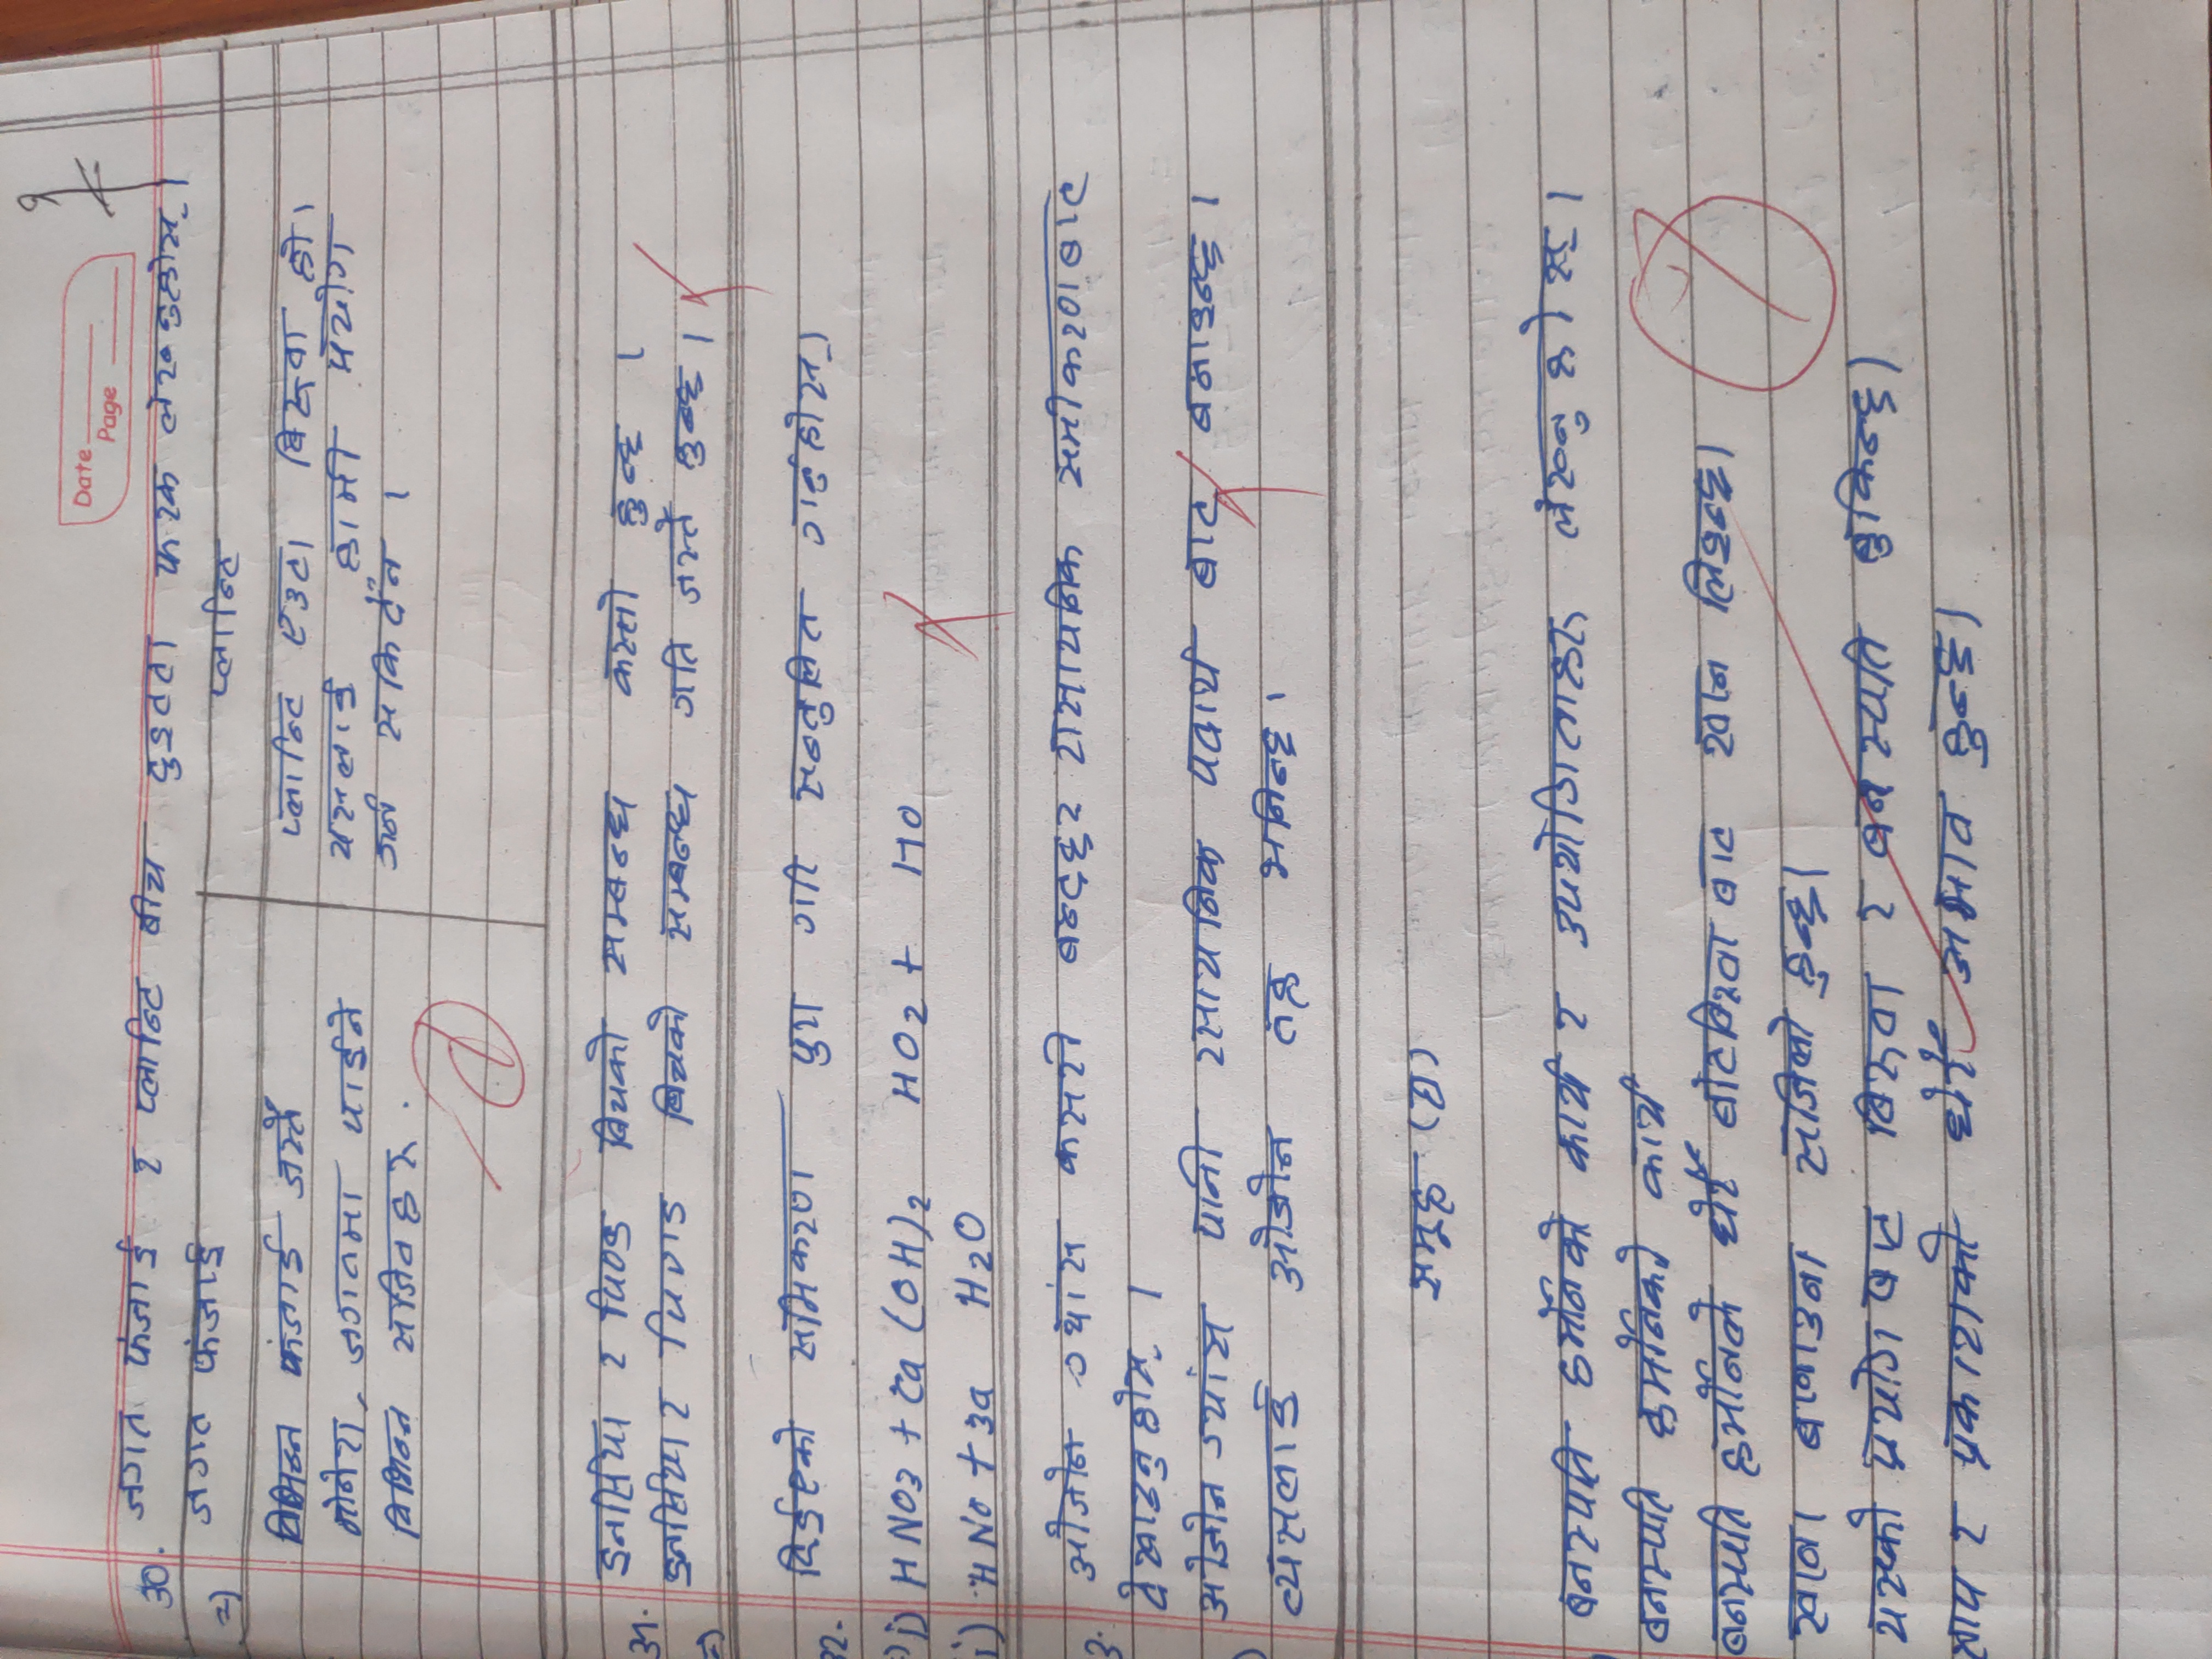 Date
Page
30. जगत फंजाई र प्लान्टि बीच दुइटटा फरक लेख्नुहोस् ।
=) जगत फंजाई प्लान्टि
विभिन्न फंजाई जस्तै प्लान्टि एउटा बिरूवा हो।
मोनेरा, जगतमा पाईने यसलाई हामी प्रयोग
विभिन्न सजिवहरू . गर्न सकिदैन ।
31. इनर्सिया र पिण्ड बिचको सम्बन्ध कस्तो हुन्छ ।
=) इनर्सिया र पिण्ड बिचको सम्बन्ध गति जस्तै हुन्छ ।
32. दिईएको समिकरण पुरा गरि सन्तुलित गर्नुहोस् ।
i) HNO3 + Ca (OH)2 HO2 + HO
i) HNO + 3a H2O
3. ओजोन ग्यांस कसरी बन्दछर रासायनिक समीकरणबाट
देखाउनुहोस् ।
ओजोन ग्यांस पानी रसायनिक पदार्थ बाट बनाइन्छ ।
त्यसलाई ओजोन तह भनिन्छ ।
समूह (घ)
बनस्पति हर्मोनको कार्य र उपयोगिताहरु लेख्नु होस् ।
बनस्पति हर्मोनको कार्य
बनस्पति हर्मोनले धेरै बोटविरुवा बाट खान लिइन्छ।
खाना बानाउना सजिलो हुन्छ।
यसको प्रयोग बाट बिरुवा र बनस्पति बुकिन्छ।
ताप र प्रकाशको धेरै अभाव हुन्छ।